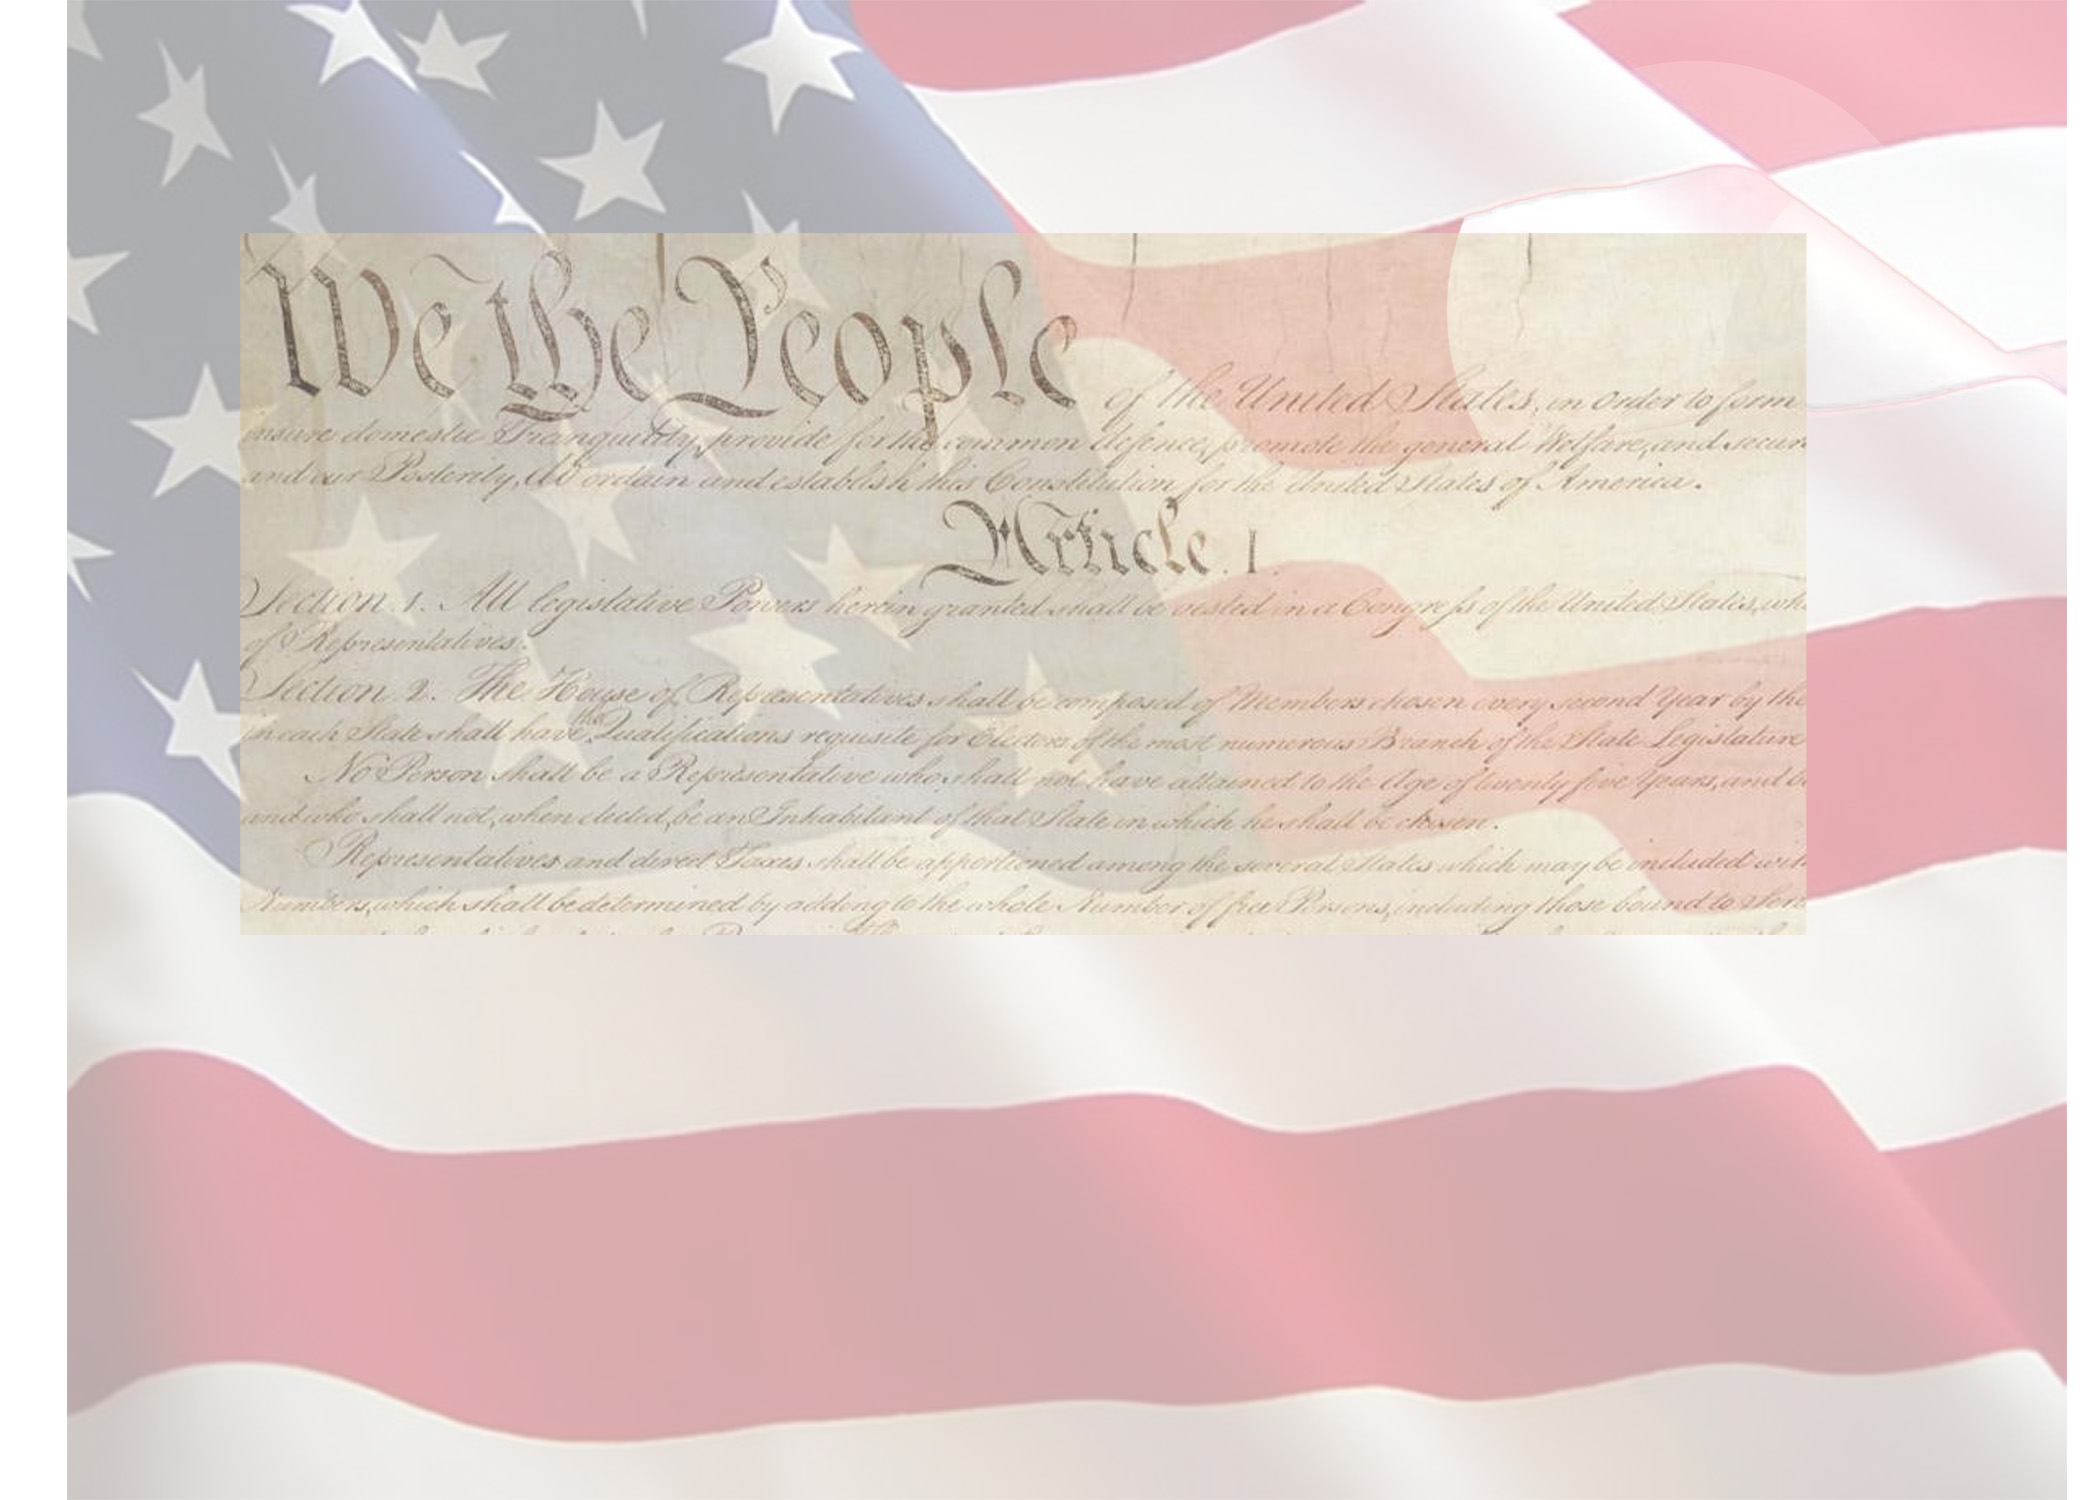 We the People of the United States, in Order to form
insure domestic Tranquility, provide for the common defence, promote the general Welfare, and secure
and our Posterity, do ordain and establish this Constitution for the United States of America.
Article. I.
Section. 1. All legislative Powers herein granted shall be vested in a Congress of the United States, wh
of Representatives.
Section. 2. The House of Representatives shall be composed of Members chosen every second Year by the
in each State shall have the Qualifications requisite for Electors of the most numerous Branch of the State Legislature
No Person shall be a Representative who shall not have attained to the Age of twenty five Years, and b
and who shall not, when elected, be an Inhabitant of that State in which he shall be chosen.
Representatives and direct Taxes shall be apportioned among the several States which may be included with
Numbers, which shall be determined by adding to the whole Number of free Persons, including those bound to Serv